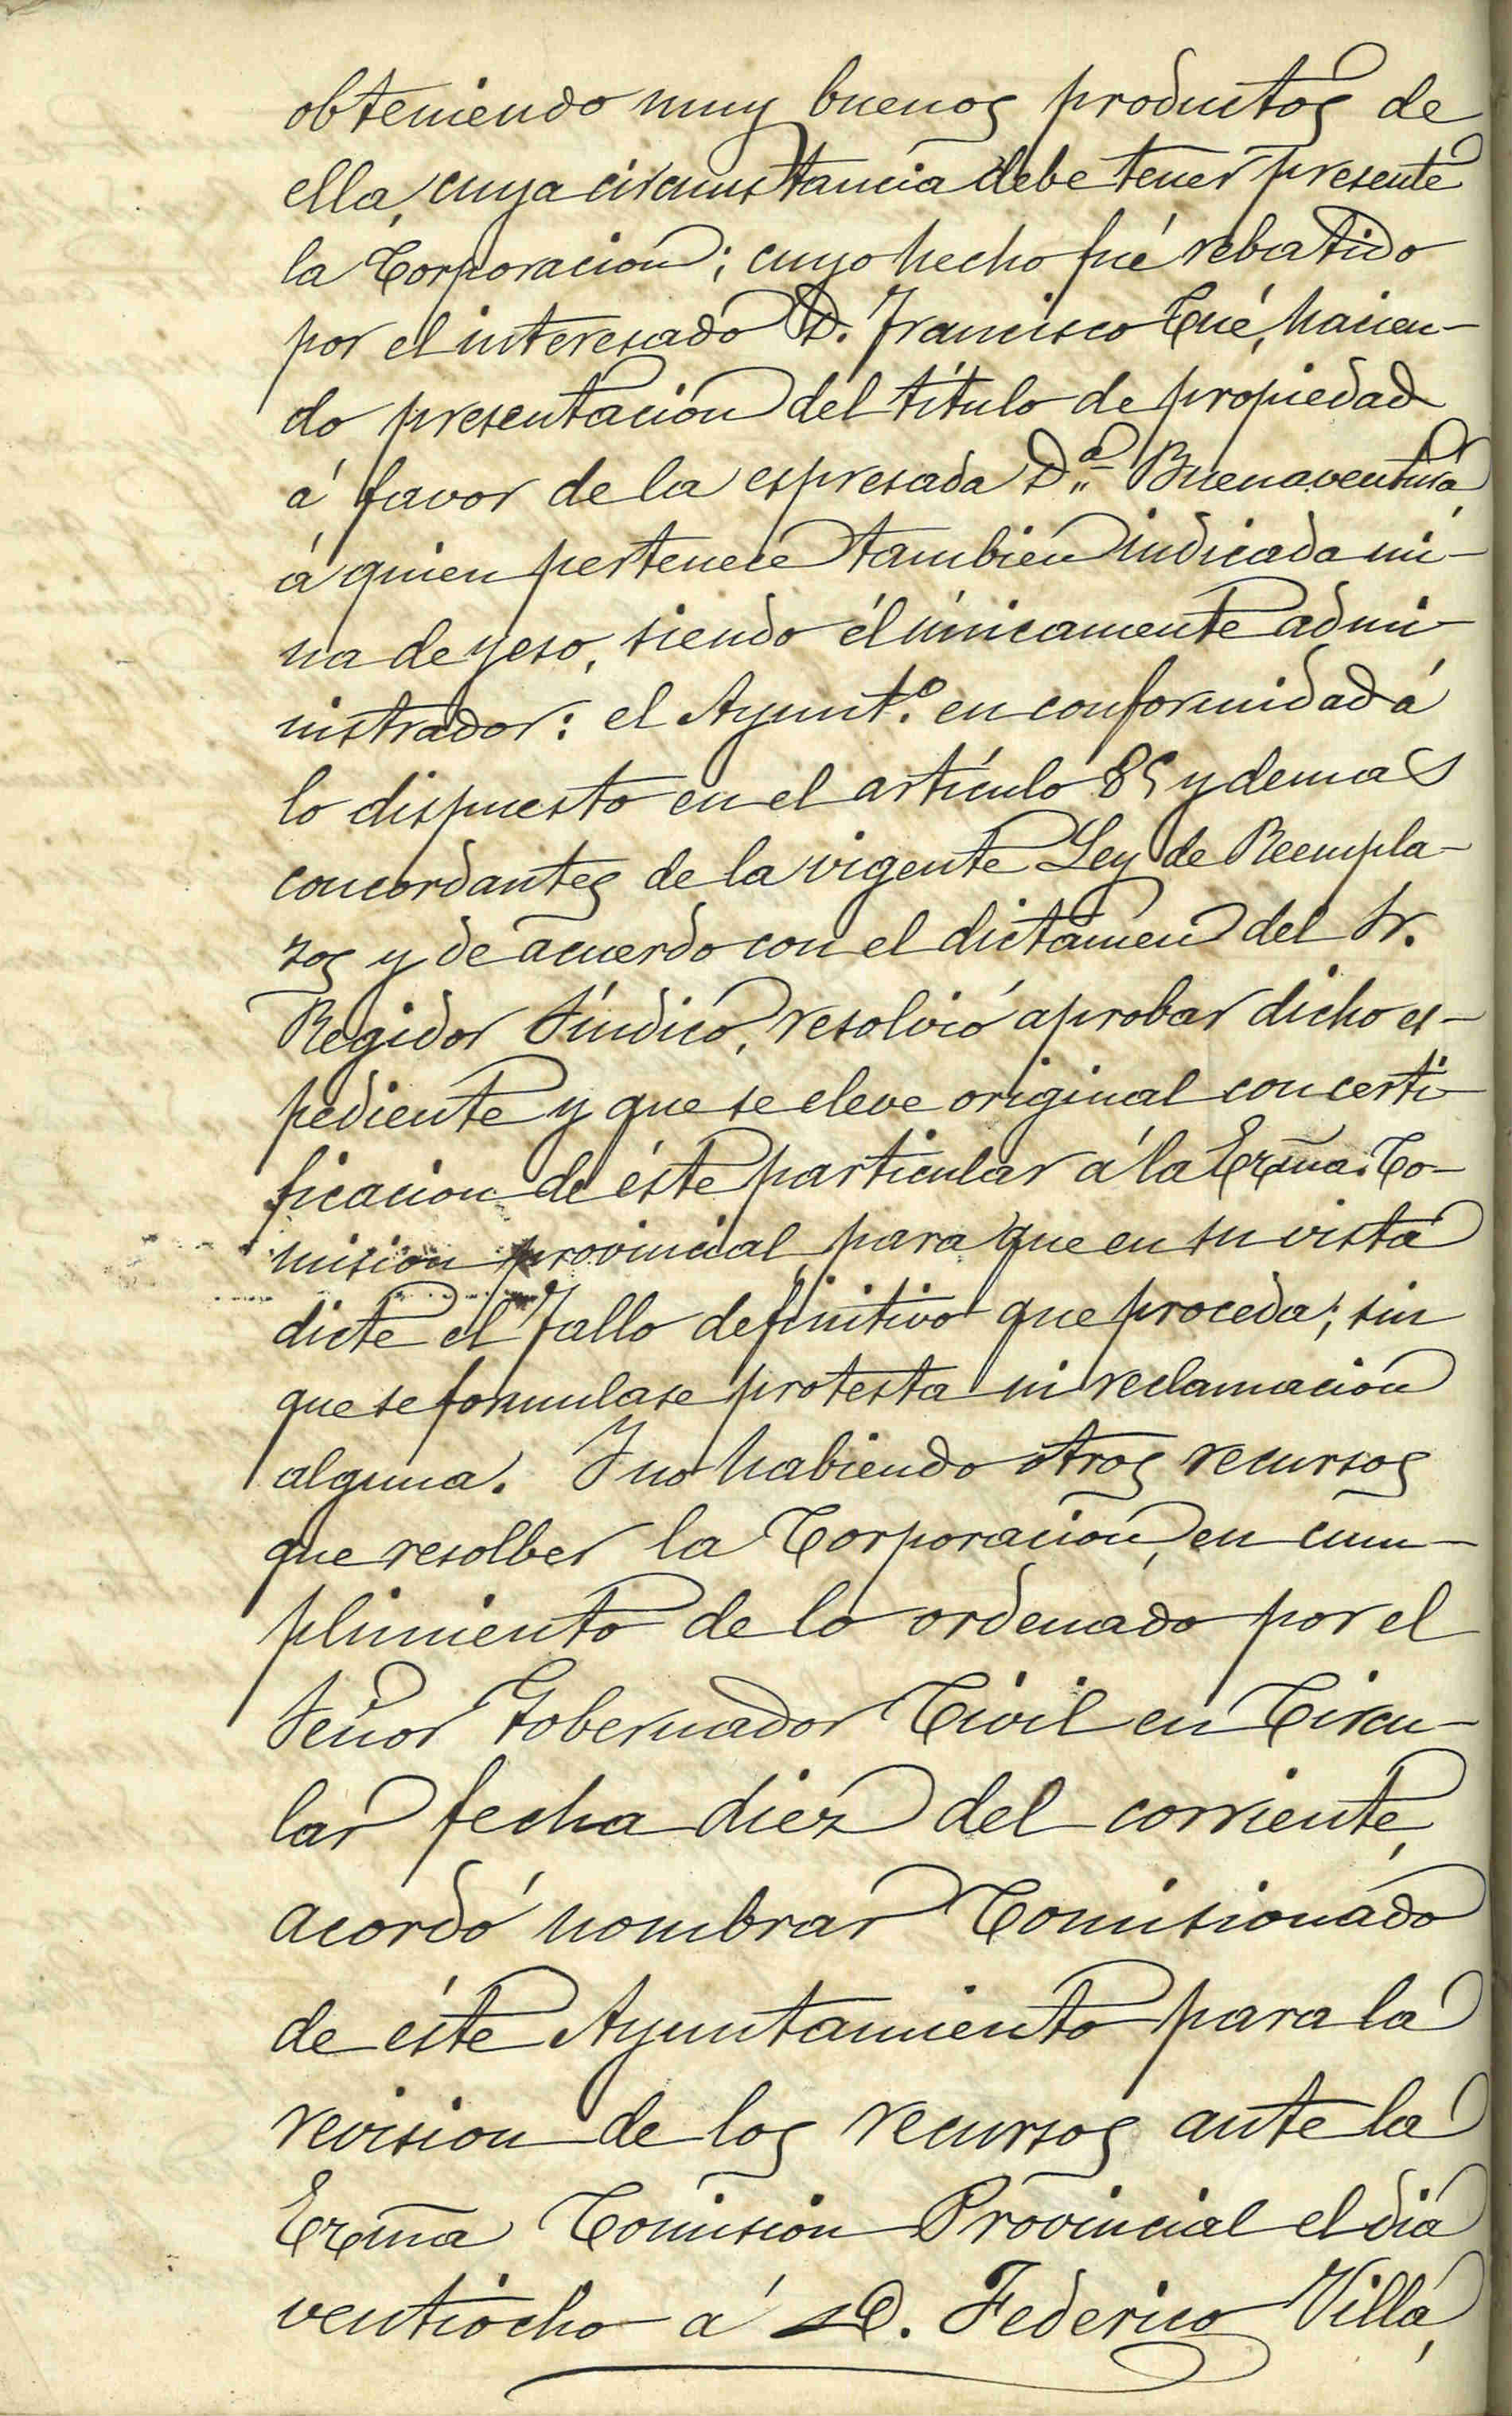 obteniendo muy buenos productos de
ella, cuya circunstancia debe tener presente
la Corporacion; cuyo hecho fué rebatido
por el interesado D. Francisco Cué, hacien-
do presentación del título de propiedad
á favor de la espresada D.ª Buenaventura,
á quien pertenece tambien indicada mi-
na de yeso, siendo él únicamente admi-
nistrador: el Ayunt.º en conformidad á
lo dispuesto en el artículo 85 y demas
concordantes de la vigente Ley de Reempla-
zos y de acuerdo con el dictámen del Sr.
Regidor Síndico, resolvió aprobar dicho es-
pediente y que se eleve original con certi-
ficacion de éste particular á la Exma. Co-
mision provincial, para que en su vista
dicte el fallo definitivo que proceda; sin
que se formulase protesta ni reclamación
alguna. Y no habiendo otros recursos
que resolber la Corporación, en cum-
plimiento de lo ordenado por el
Señor Gobernador Civil en Circu-
lar fecha diez del corriente,
acordó nombrar Comisionado
de éste Ayuntamiento para la
revision de los recursos ante la
Exma Comision Provincial el dia
ventiocho á D. Federico Villa,